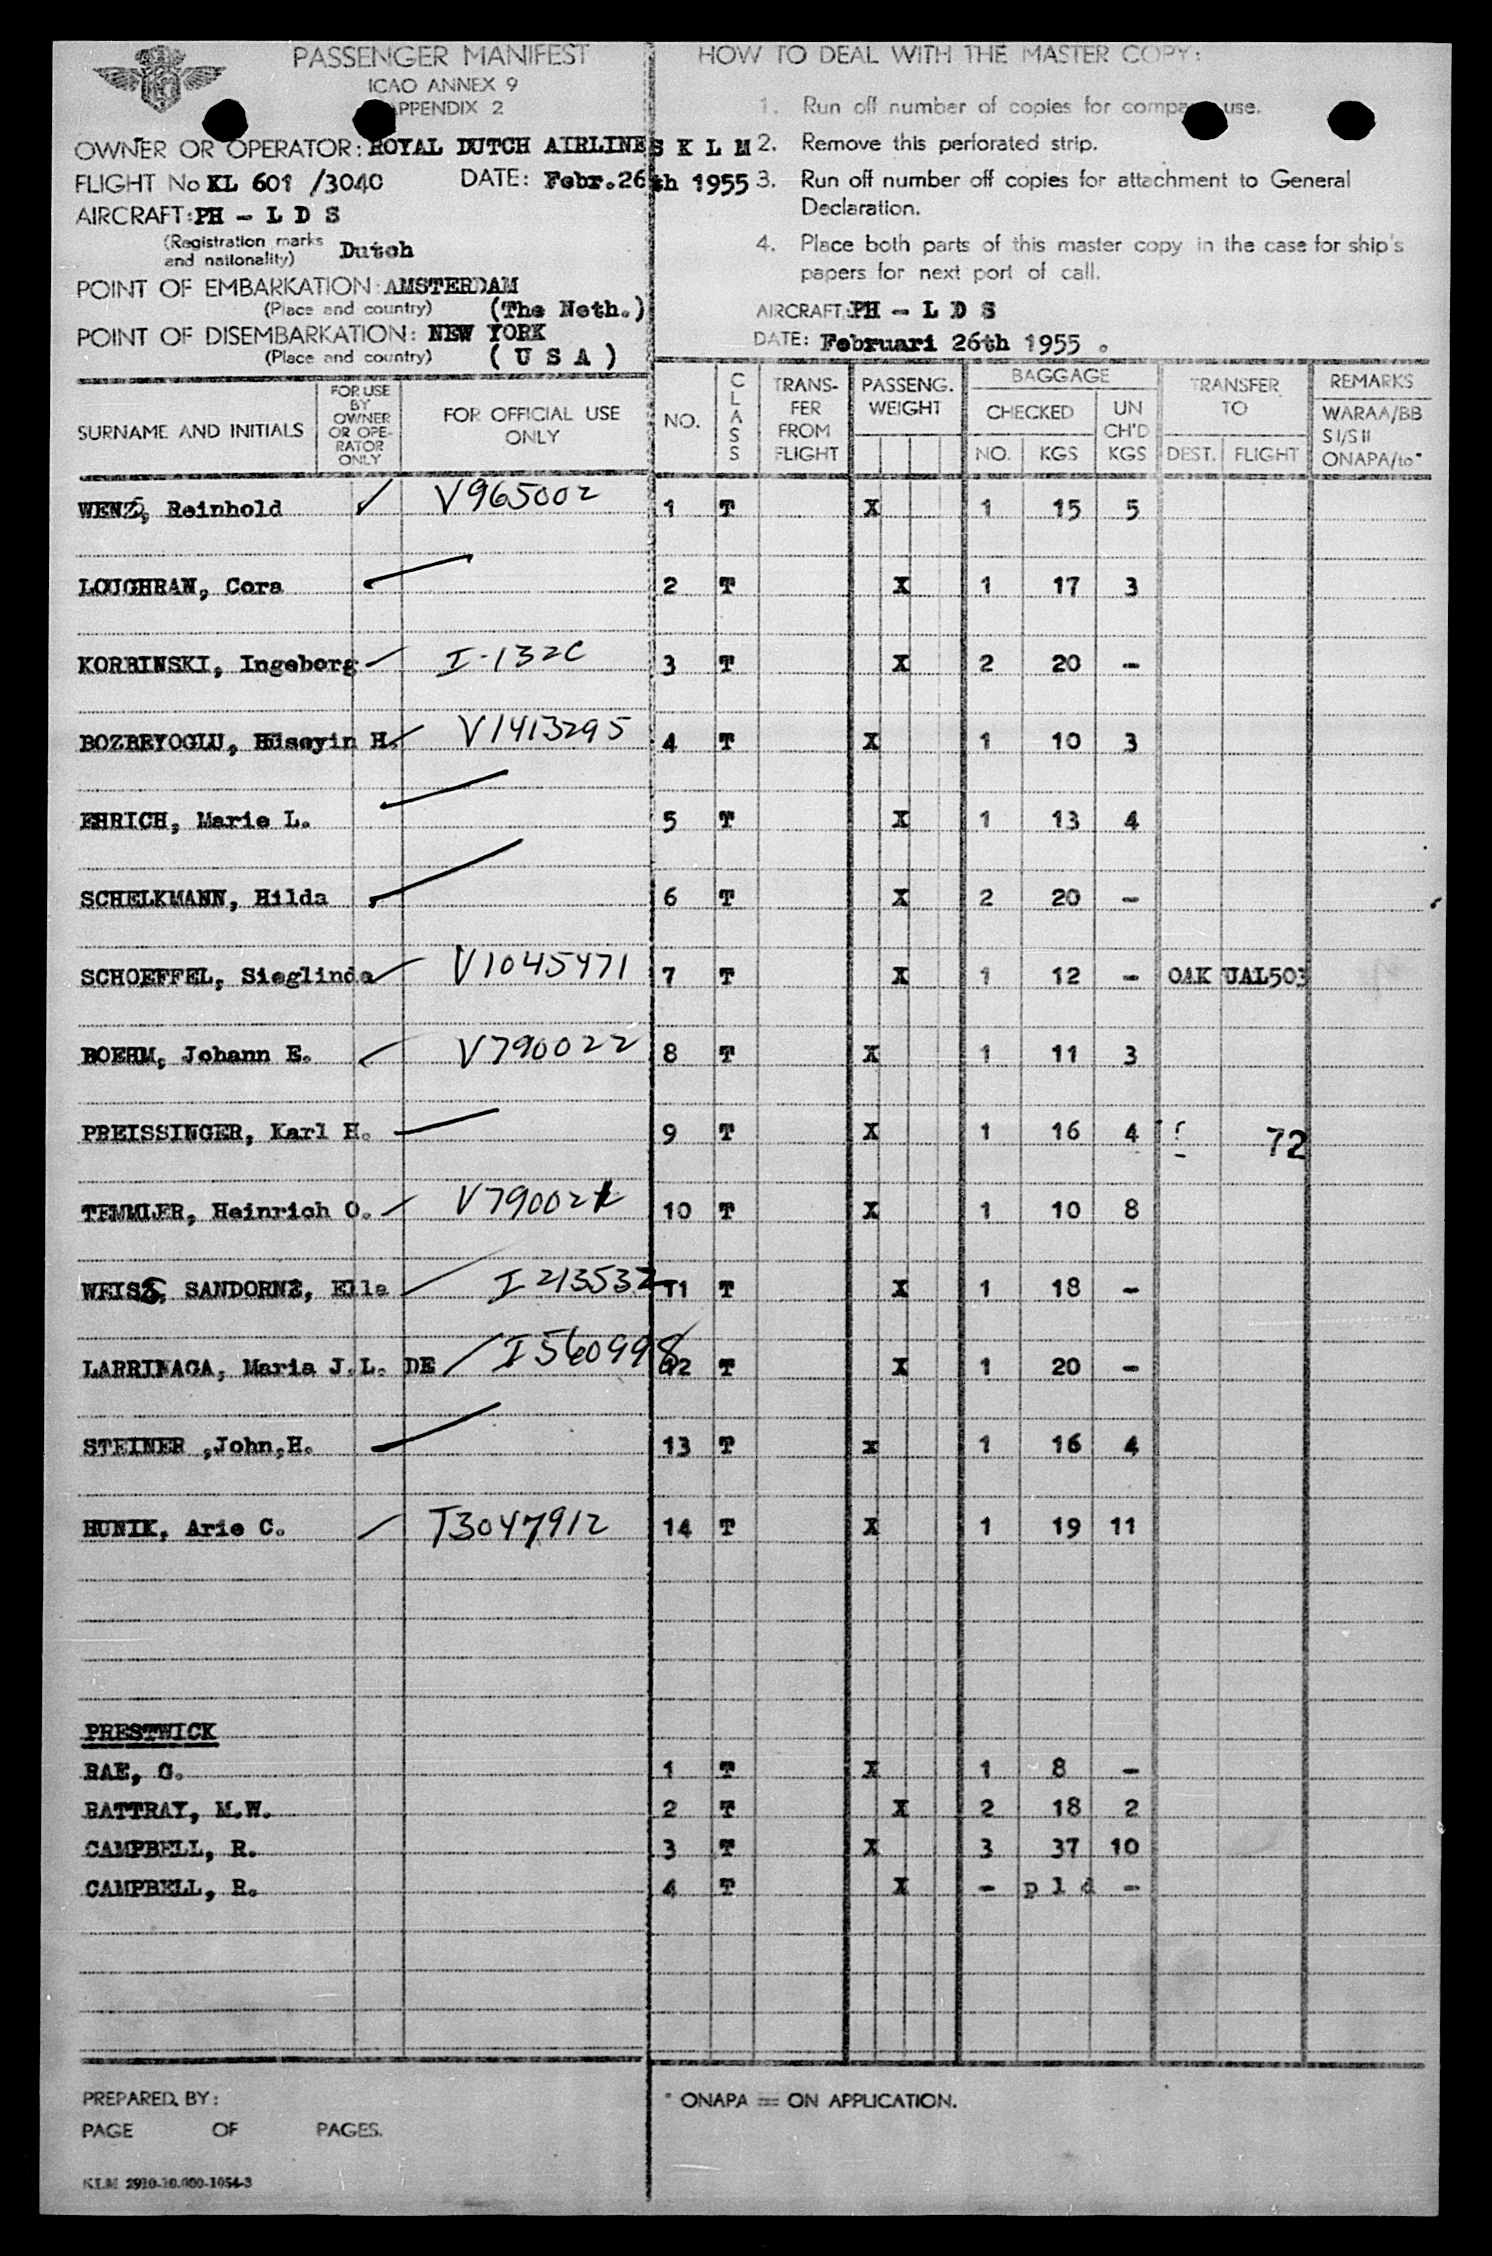 PASSENGER MANIFEST
ICAO ANNEX 9
APPENDIX 2
OWNER OR OPERATOR: ROYAL DUTCH AIRLINES K L M
FLIGHT No KL 601 /3040 DATE: Febr.26th 1955
AIRCRAFT: PH - L D S
(Registration marks and nationality) Dutch
POINT OF EMBARKATION: AMSTERDAM
(Place and country) (The Neth.)
POINT OF DISEMBARKATION: NEW YORK
(Place and country) ( U S A )
HOW TO DEAL WITH THE MASTER COPY:
1. Run off number of copies for company use.
2. Remove this perforated strip.
3. Run off number off copies for attachment to General
Declaration.
4. Place both parts of this master copy in the case for ship's
papers for next port of call.
AIRCRAFT: PH - L D S
DATE: Februari 26th 1955 .
SURNAME AND INITIALS FOR USE BY OWNER OR OPE-RATOR ONLY FOR OFFICIAL USE ONLY NO. CLASS TRANS-FER FROM FLIGHT PASSENG. WEIGHT BAGGAGE CHECKED NO. KGS UN CH'D KGS TRANSFER TO DEST. FLIGHT REMARKS WARAA/BB S I/S II ONAPA/to*
WENZ, Reinhold V965002 1 T X 1 15 5
LOUGHRAN, Cora 2 T X 1 17 3
KORBINSKI, Ingeborg I-132C 3 T X 2 20 -
BOZBEYOGLU, Hüseyin H. V1413295 4 T X 1 10 3
EHRICH, Marie L. 5 T X 1 13 4
SCHELKMANN, Hilda 6 T X 2 20 -
SCHOEFFEL, Sieglinda V1045471 7 T X 1 12 - OAK UAL503
BOEHM, Johann E. V790022 8 T X 1 11 3
PREISSINGER, Karl H. 9 T X 1 16 4 72
TEMMLER, Heinrich O. 10 T X 1 10 8
WEISS, SANDORNE, Ella I213532 11 T X 1 18 -
LARRINAGA, Maria J.L. DE I560998 12 T X 1 20 -
STEINER ,John,H. 13 T x 1 16 4
HUNIK, Arie C. T3047912 14 T X 1 19 11
PRESTWICK
RAE, G. 1 T X 1 8 -
RATTRAY, M.W. 2 T X 2 18 2
CAMPBELL, R. 3 T X 3 37 10
CAMPBELL, R. 4 T X - p l d -
PREPARED. BY:
PAGE OF PAGES.
* ONAPA = ON APPLICATION.
KLM 2910-10.000-1054-3